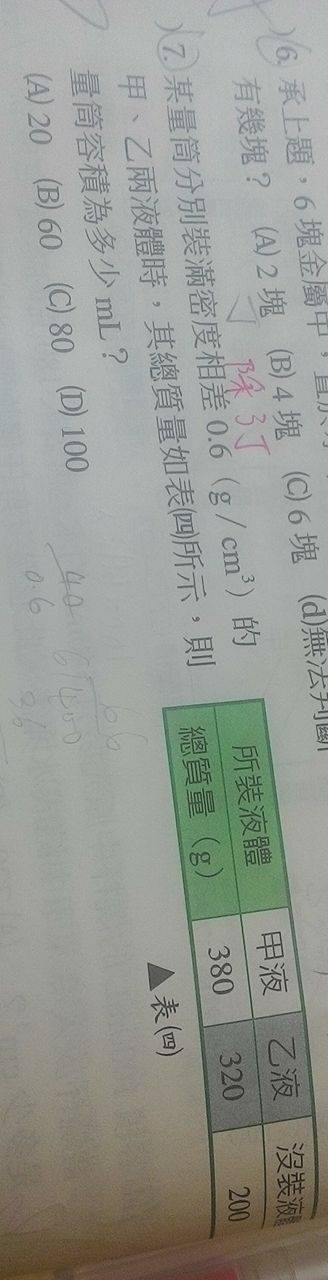 6. 承上題，6 塊金屬中，
有幾塊？ (A) 2 塊 (B) 4 塊 (C) 6 塊 (d)無法判斷
除了
7. 某量筒分別裝滿密度相差 0.6（g / cm³）的
甲、乙兩液體時，其總質量如表(四)所示，則
量筒容積為多少 mL？
(A) 20 (B) 60 (C) 80 (D) 100
所裝液體 甲液 乙液 沒裝液體
總質量（g） 380 320 200
▲表(四)
0.6